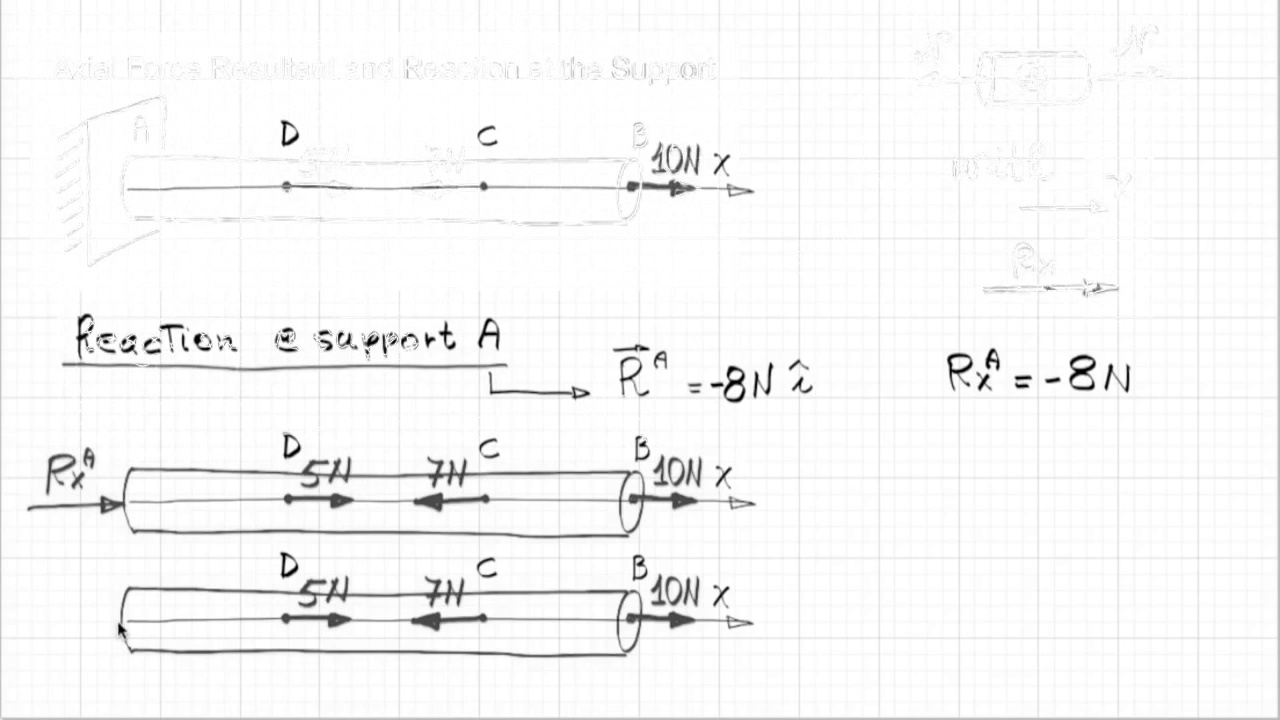 axial Force Resultant and Reaction at the Support
N N
A D 5N 7N C B 10N x
write
x
Rx
Reaction @ support A
R⃗ᴬ = -8N î
Rxᴬ = -8N
Rxᴬ D 5N 7N C B 10N x
D 5N 7N C B 10N x